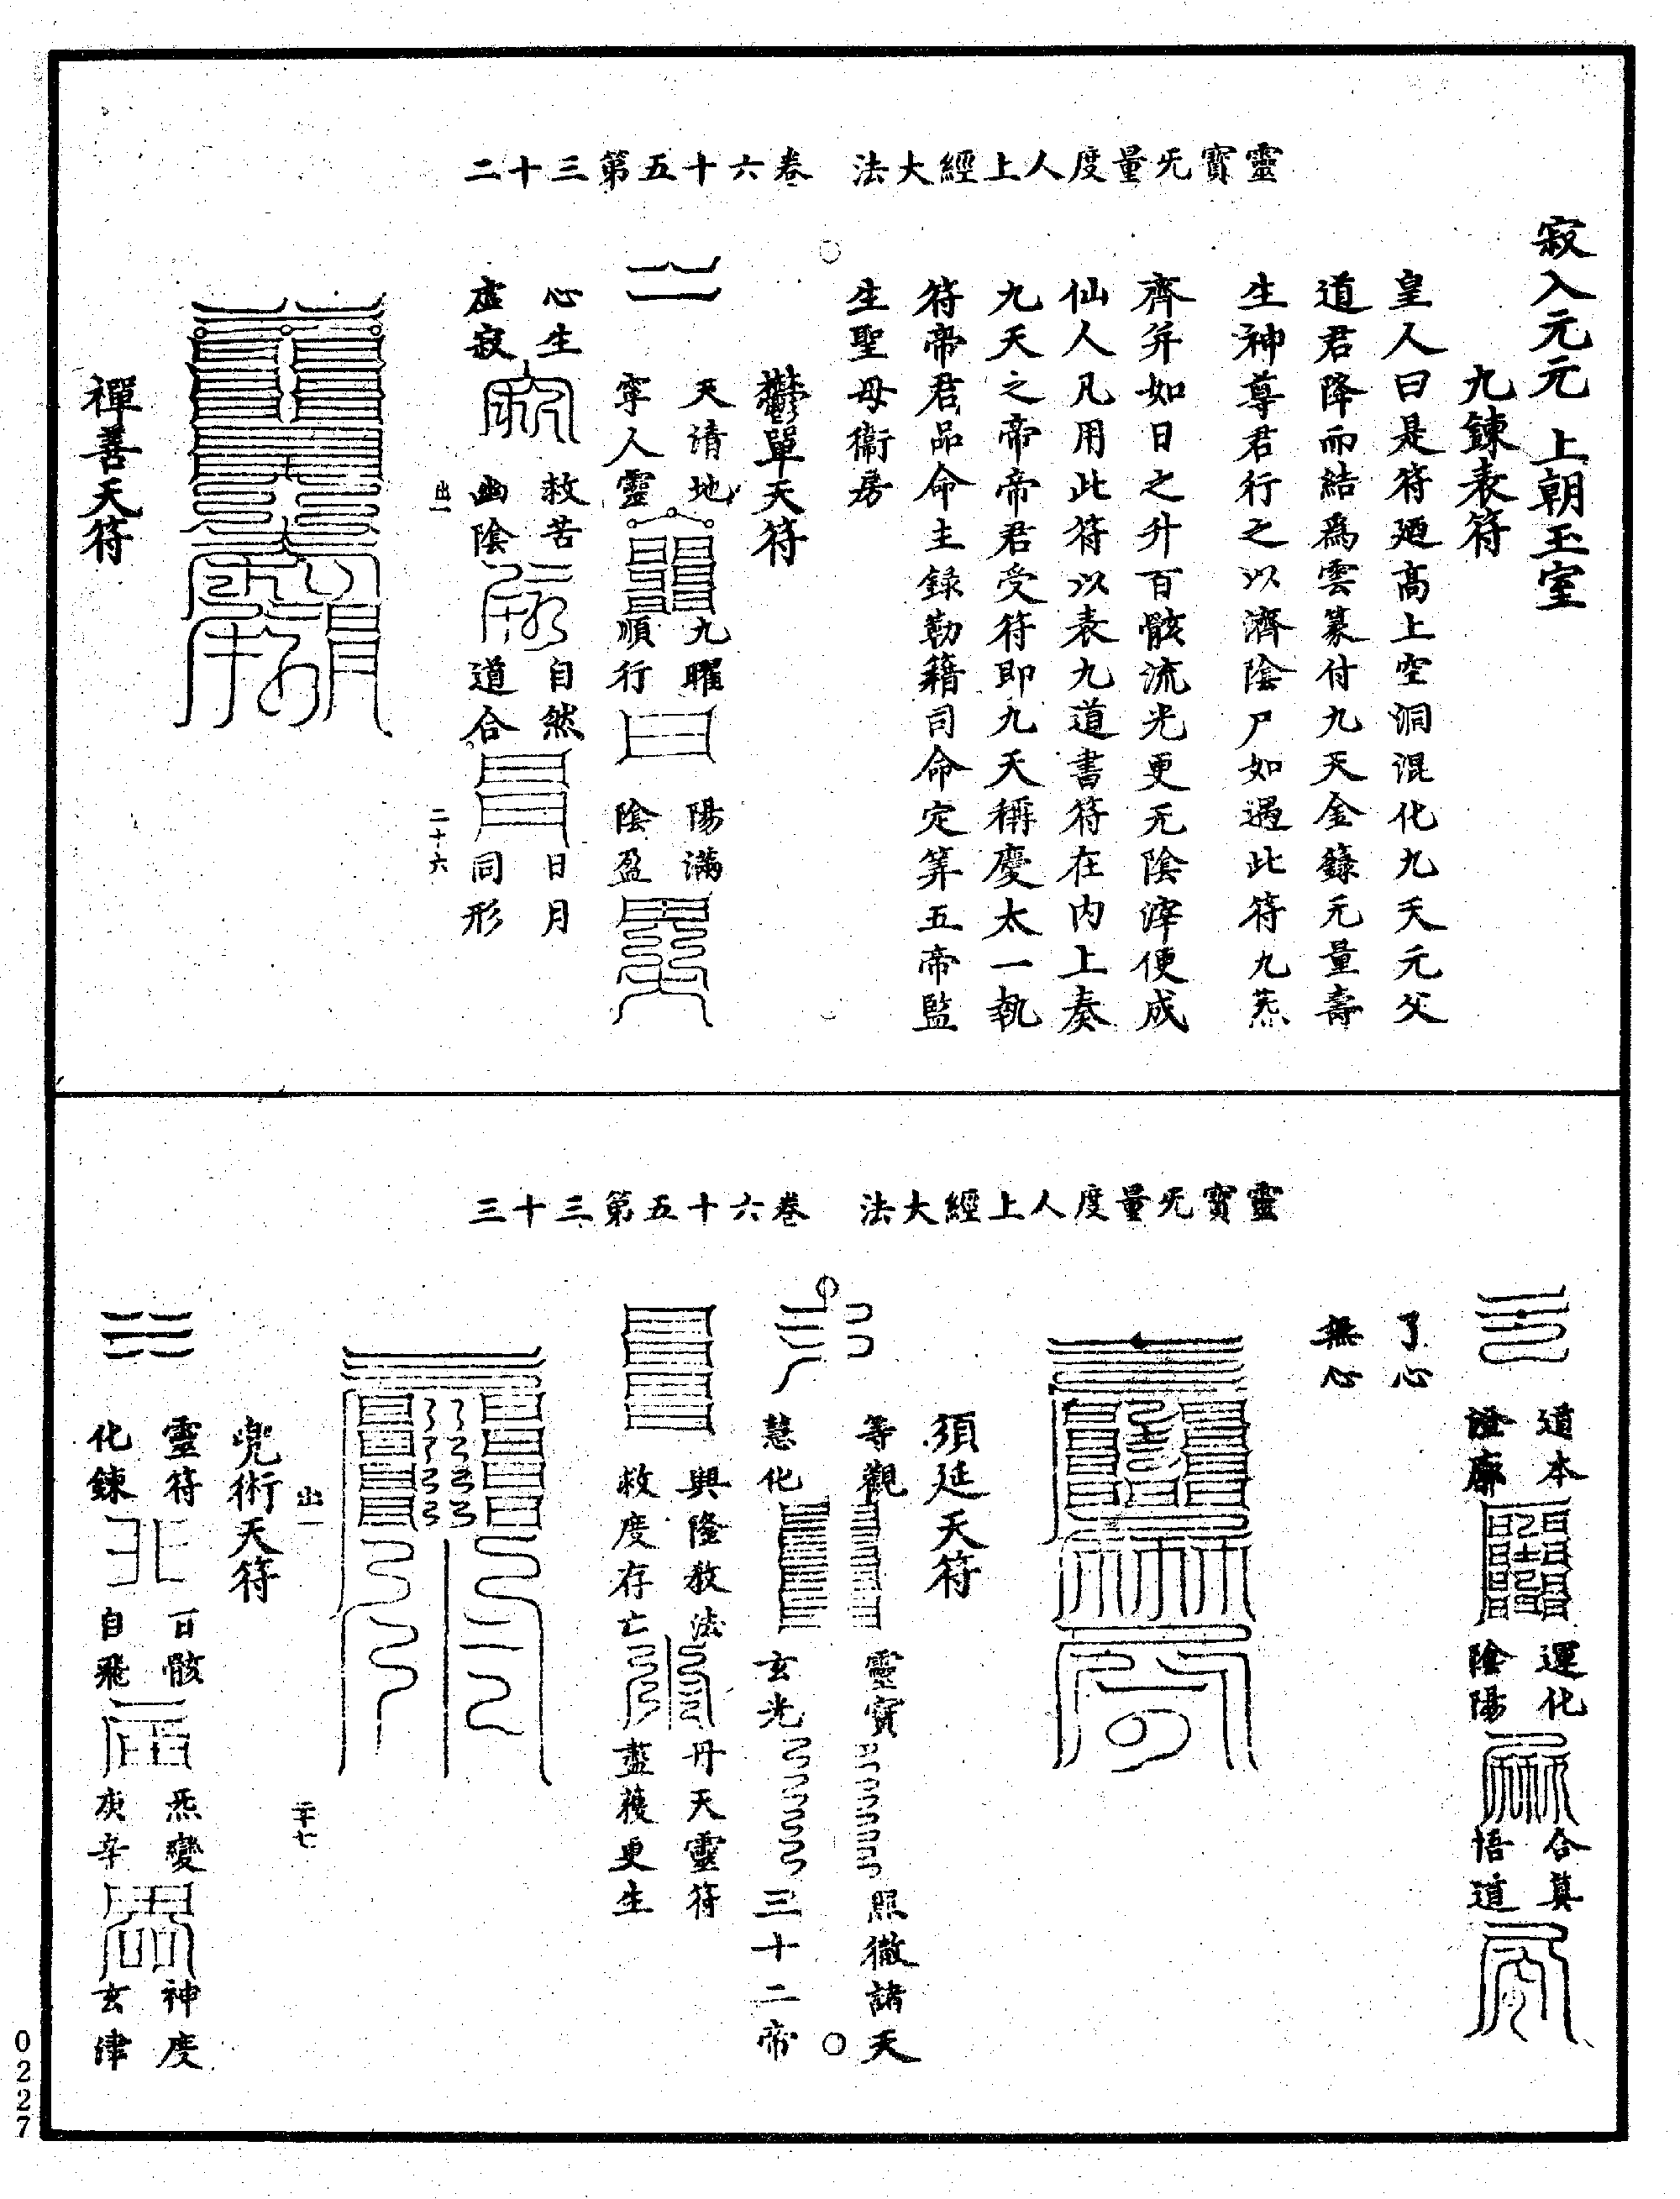 靈寶旡量度人上經大法　卷六十五第三十二
寂入元元　上朝玉室
九鍊表符
皇人曰是符廼高上空洞混化九天元父
道君降而結爲雲篆付九天金籙元量壽
生神尊君行之以濟陰尸如過此符九炁
齊并如日之升百骸流光更无陰滓便成
仙人凡用此符以表九道書符在内上奏
九天之帝帝君受符即九天稱慶太一執
符帝君品命主録勒籍司命定筭五帝監
生聖母衞房
鬱單天符
天清地　九曜　陽滿
寧人靈　順行　陰盈
心生　救苦　自然　日月
虛寂　幽陰　道合　同形
出一　二十六
禪善天符
靈寶旡量度人上經大法　卷六十五第三十三
道本　運化　合真
證廓　陰陽　悟道
了心
無心
須延天符
等觀　靈寶　照徹諸天
慧化　玄光　三十二帝
興隆教法　丹天靈符
救度存亡　盡獲更生
出一　二十七
兜術天符
靈符　百骸　炁變　神度
化鍊　自飛　庚辛　玄津
0227